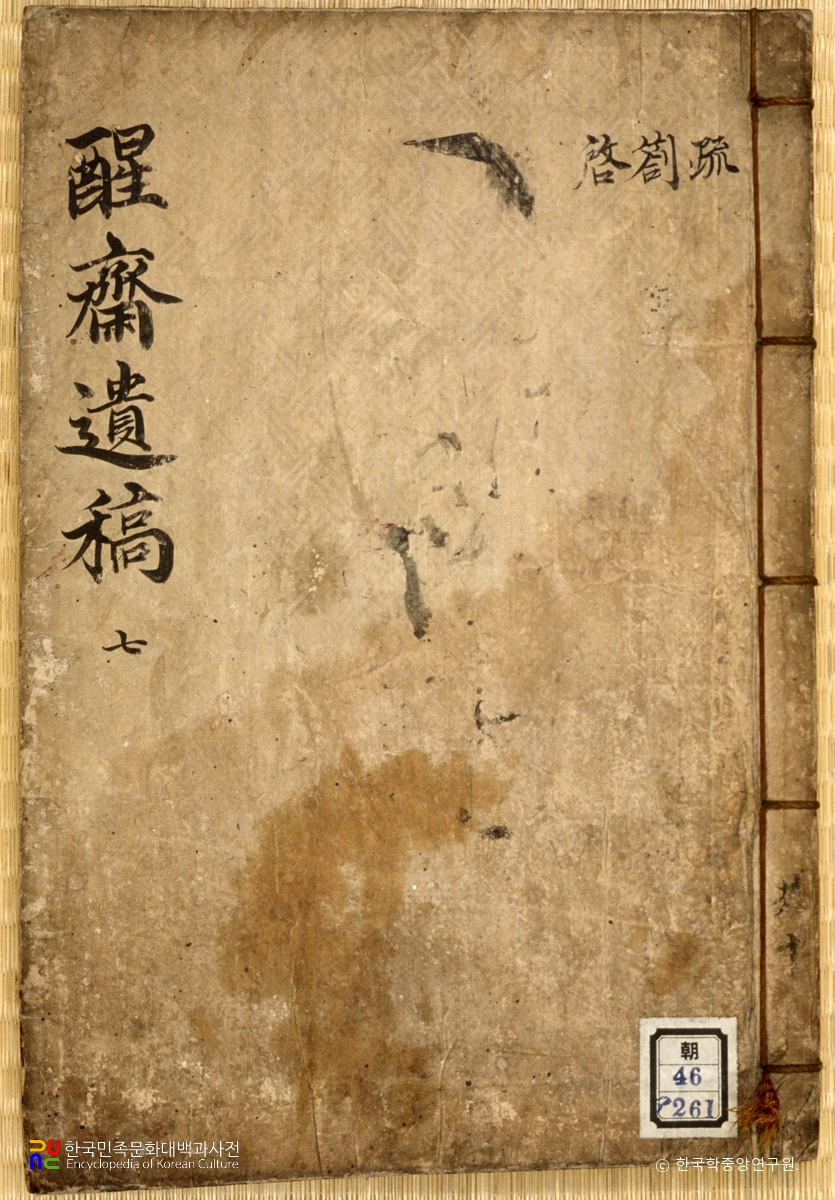 醒齋遺稿 七
疏劄啓
共十
朝
46
P261
한국민족문화대백과사전
Encyclopedia of Korean Culture
© 한국학중앙연구원